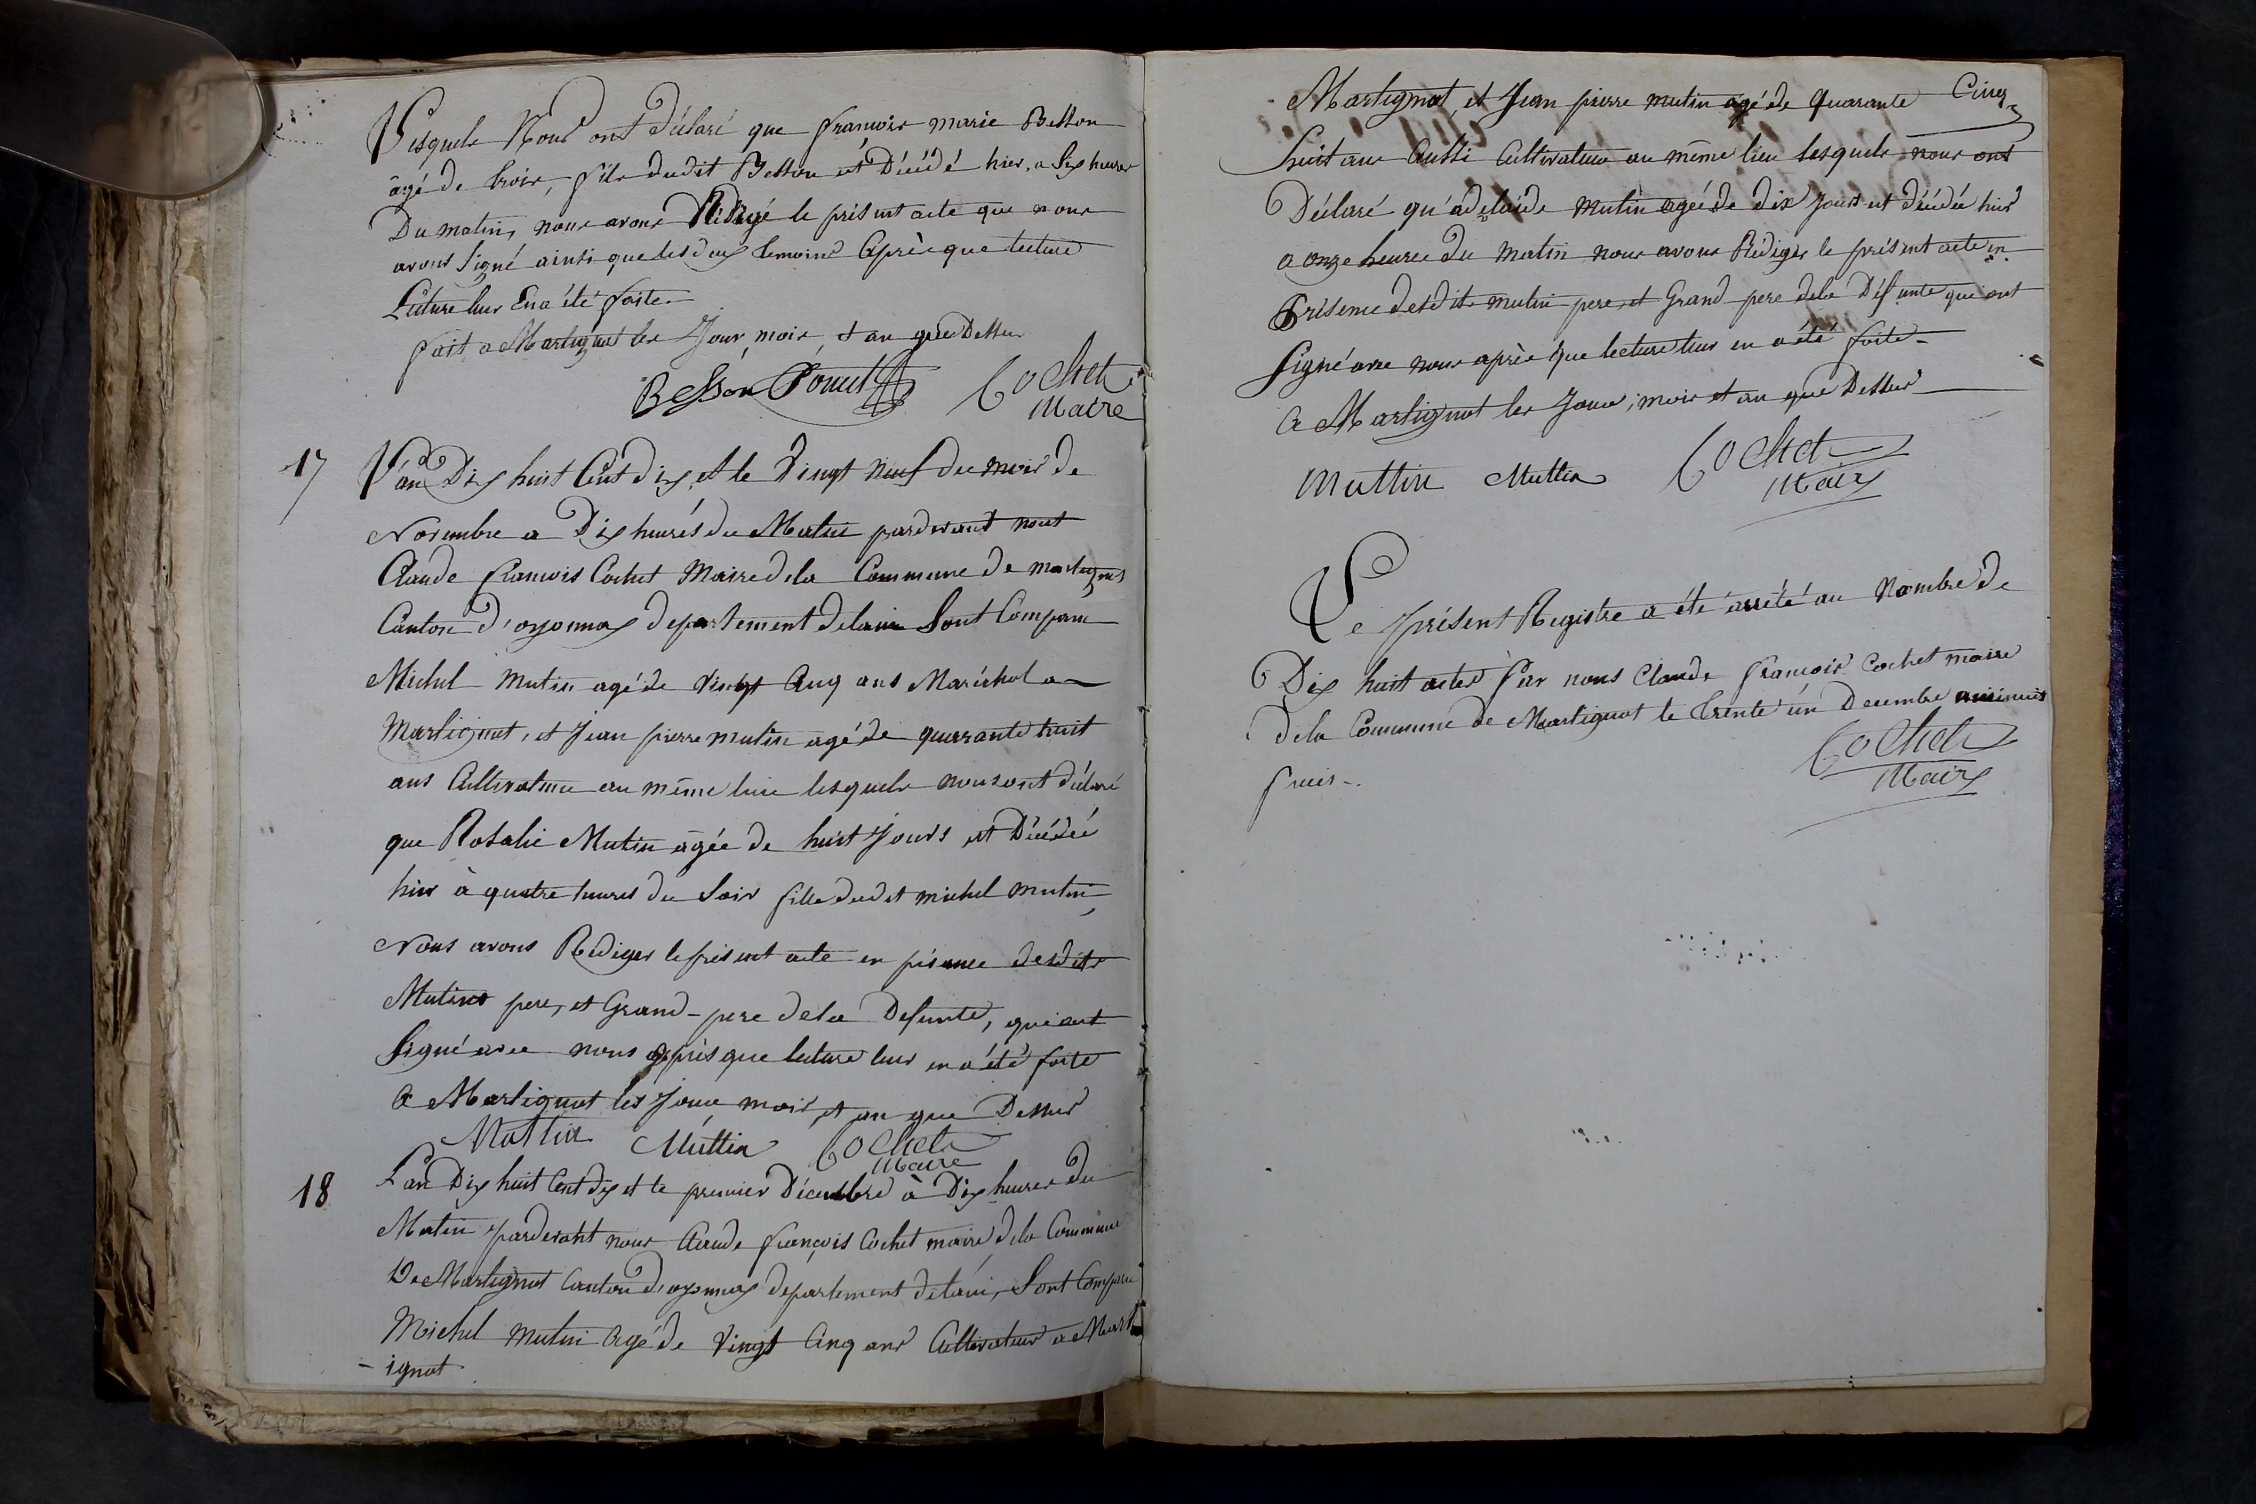 Lesquels Nous ont déclaré que francois marie Besson
âgé de trois, fils dudit Besson est Décédé hier, a Six heures
Du matin, nous avons Rédigé le présent acte que nous
avons Signé ainsi que les deux temoins Après que lecture
Lecture leur En a été faite
fait a Martignat les Jour, mois, et an que Dessus
Besson Poncet Cochet
Maire
17
L'an Dix huit Cent dix, et le Vingt Neuf du mois de
Novembre a Dix heures du Matin pardevant nous
Claude francois Cochet Maire dela Commune de martignat
Canton d'oyonnax departement delain Sont Comparu
Michel Mutin agé de vingt Cinq ans Maréchal a
Martignat, et Jean pierre mutin agé de quarante huit
ans Cultivateur au même lieu lesquels nous ont déclaré
que Rosalie Mutin âgée de huit Jours est Décédée
hier à quatre heures du Soir fille dudit michel mutin,
Nous avons Rediger le présent acte en présence desdits
Mutins pere, et Grand-pere dela Defunte, qui ont
Signé avec nous après que lecture leur en a été faite
A Martignat les Jour mois, et an que Dessus
Muttin Muttin Cochet
Maire
18
L'an Dix huit Cent dix et le premier Décembre à Dix heures du
Matin pardevant nous Claude françois Cochet maire dela Commune
De Martignat Canton d'oyonnax departement delain, Sont Comparu
Michel mutin Agé de vingt Cinq ans Cultivateur a Mart
- ignat
Martignat, et Jean pierre mutin agé de Quarante Cinq
huit ans Aussi Cultivateur au même lieu Lesquels nous ont
Déclaré qu'adelaide Mutin agée de dix Jours est décédée hier
a onze heures du matin nous avons Rédiger le présent acte en
Présence desdits mutin pere, et Grand pere dela Défunte qui ont
Signé avec nous après que lecture leur en a été faite
A Martignat les Jour, mois et an que Dessus
Muttin Muttin Cochet
Maire
Le présent Registre a été arrêté au Nombre de
Dix huit actes Par nous Claude francois Cochet maire
dela Commune de Martignat le trente un Decembre aminuit
precis
Cochet
Maire